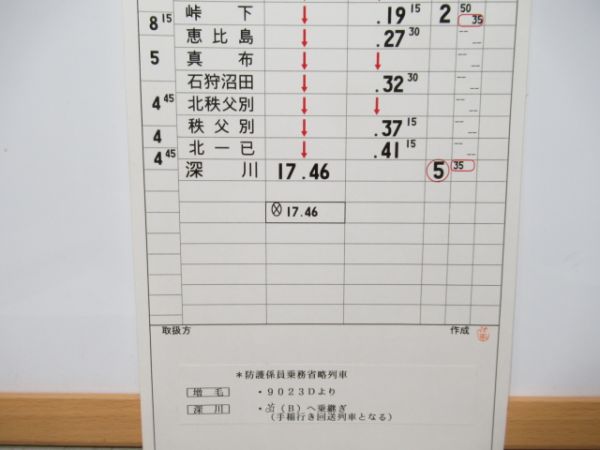 8 15 峠下 ↓ .19 15 2 50 35
恵比島 ↓ .27 30
5 真布 ↓ ↓
石狩沼田 ↓ .32 30
4 45 北秩父別 ↓ ↓
4 秩父別 ↓ .37 15
4 45 北一已 ↓ .41 15
深川 17.46 5 35
⊗ 17.46
取扱方 作成
*防護係員乗務省略列車
増毛 ・9023Dより
深川 ・(B)へ乗継ぎ
(手稲行き回送列車となる)